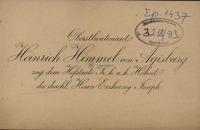 Ep. 1437
Oberstlieutenant
Heinrich Himmel von Agisburg
zug. dem Hofstaate Sr. k. u. k. Hoheit
des durchl. Herrn Erzherzog Joseph